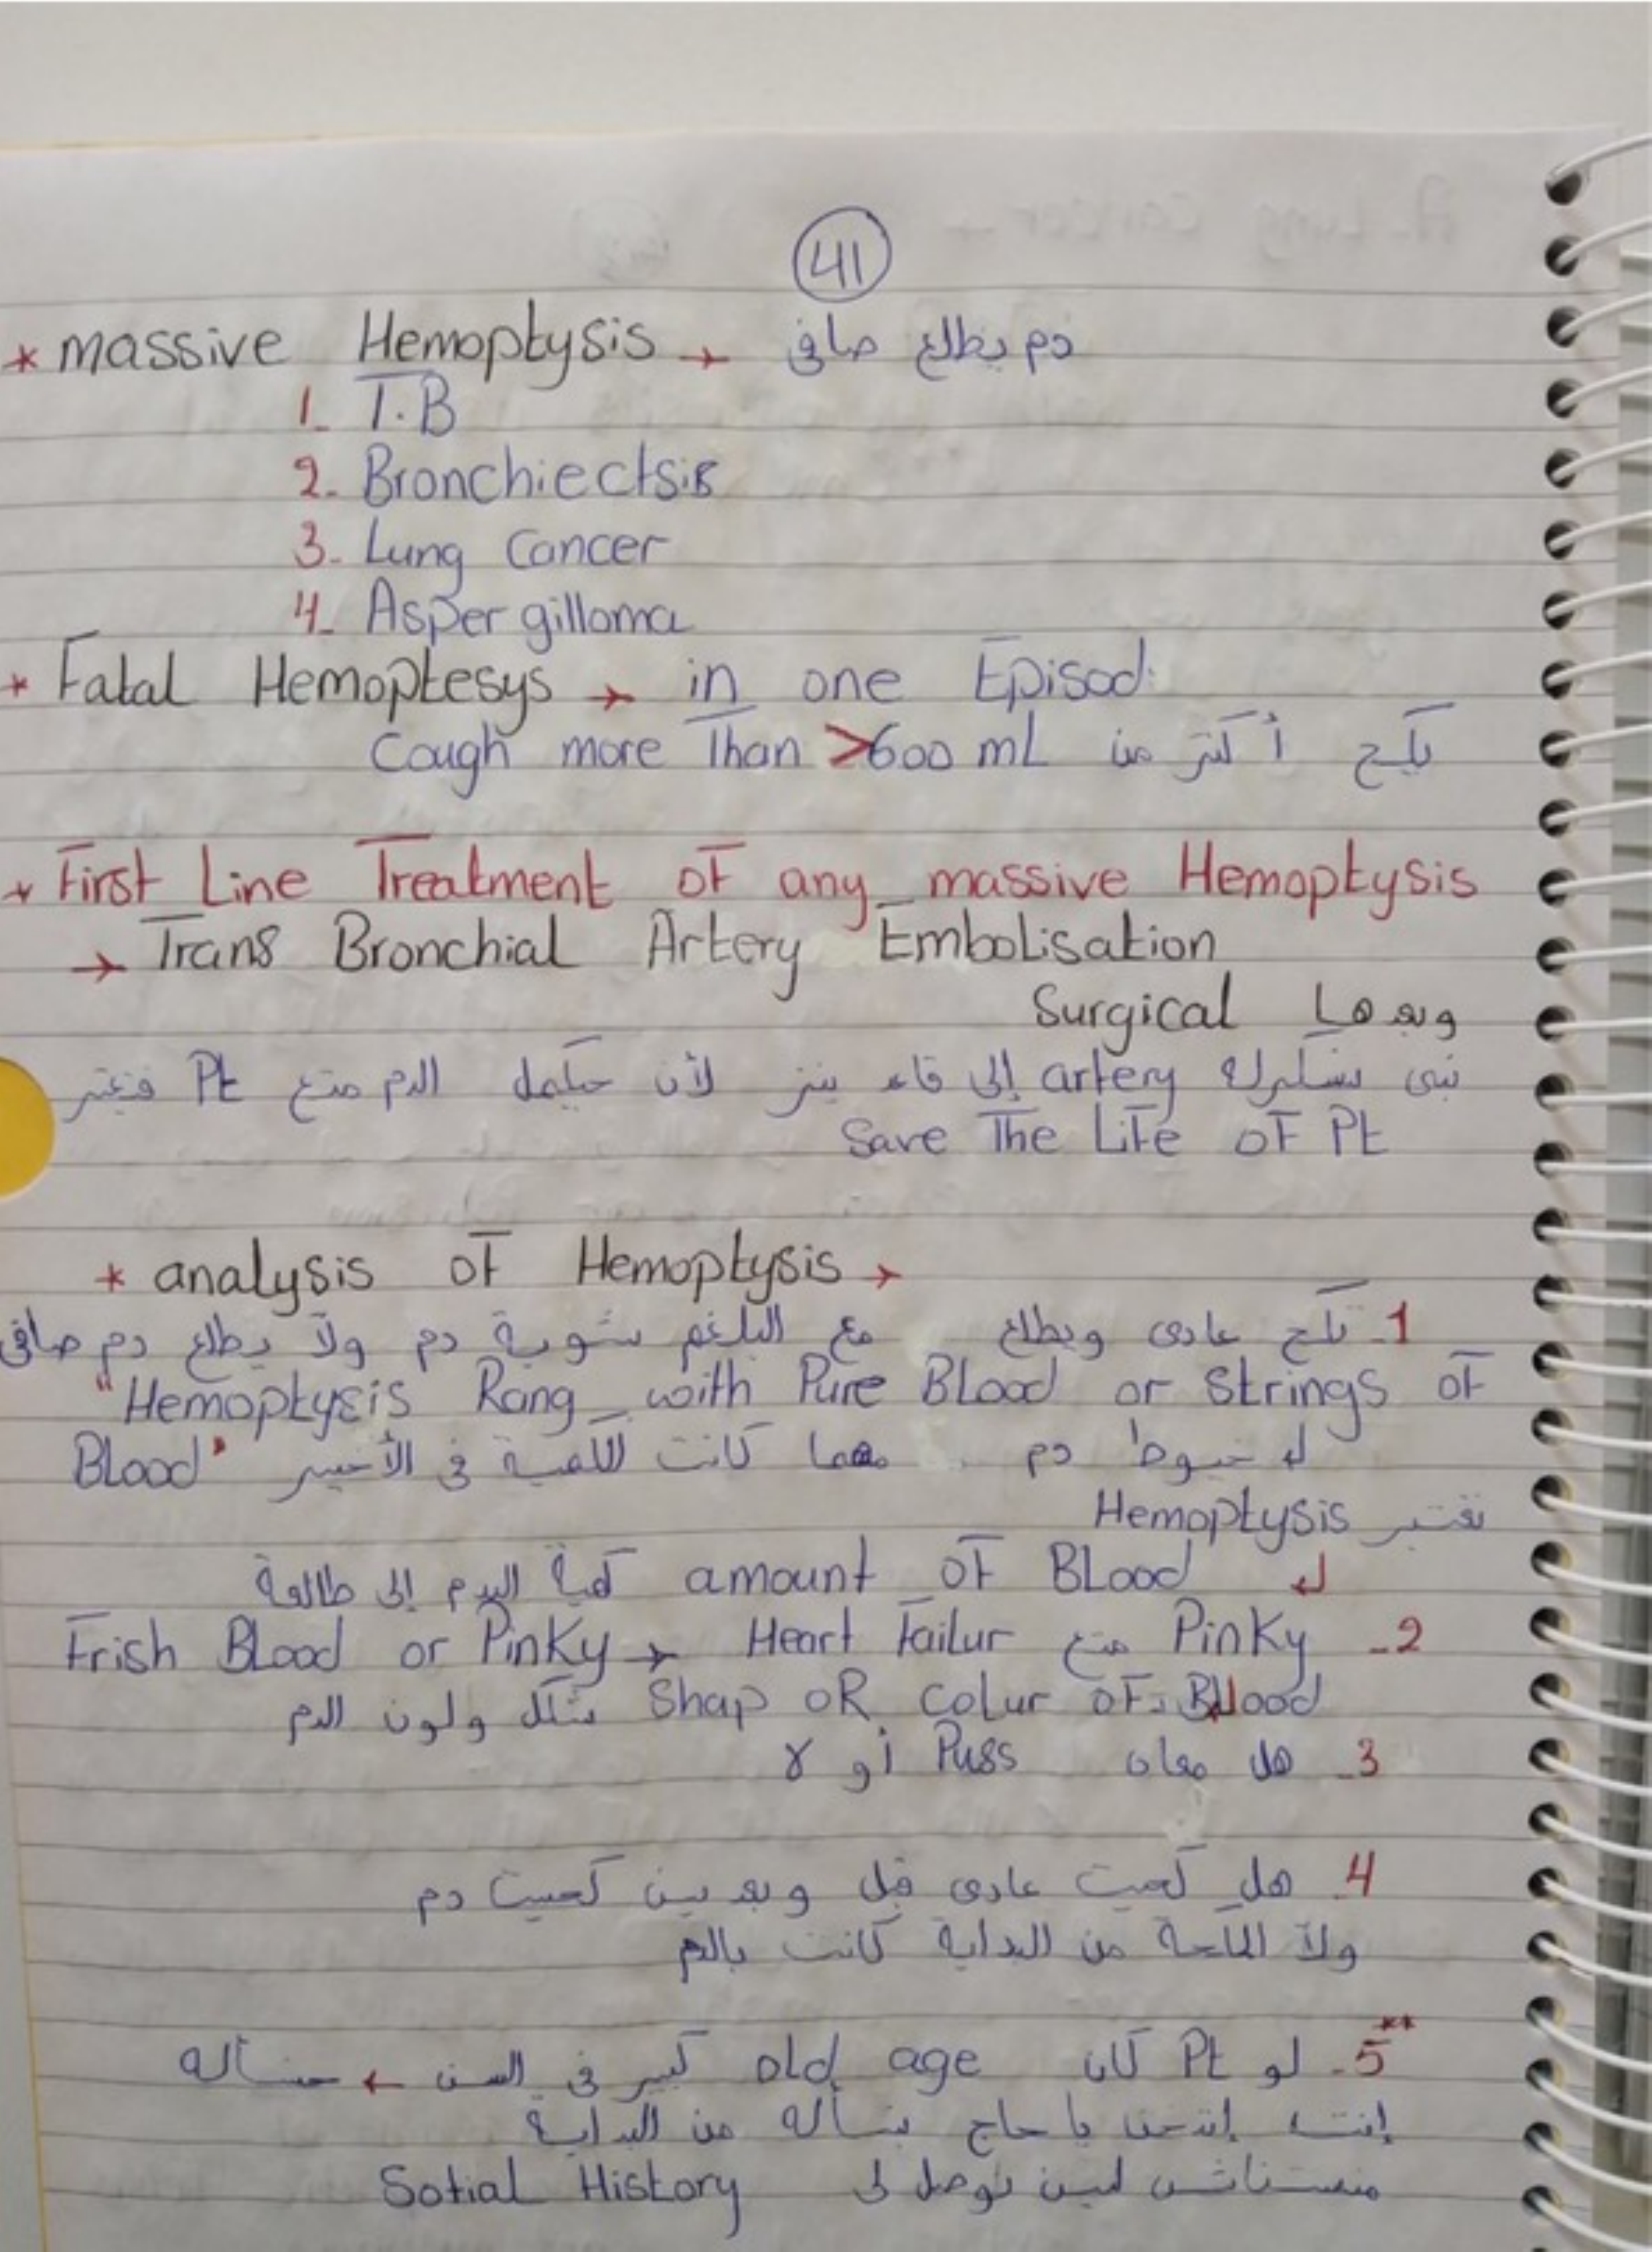 41
* massive Hemoptysis → دم يطلع صافي
1- T.B
2- Bronchiectsis
3- Lung Cancer
4- Asper gilloma
* Fatal Hemoptesys → in one Episod
Cough more Than >600 mL يكح أكتر من
* First Line Treatment of any massive Hemoptysis
→ Trans Bronchial Artery Embolisation
وبعدها Surgical
نبي نسكرله artery إلى قاعد ينز لأن حيكمل الدم متع Pt فنعتبر
Save The Life of Pt
* analysis of Hemoptysis →
1- تكح عادي ويطلع مع البلغم شوية دم ولا يطلع دم صافي
"Hemoptysis Rang with Pure Blood or Strings of
Blood" خيوط دم مهما كانت الكمية في الأخير
نعتبر Hemoptysis
amount of Blood كمية الدم إلى طالعة
2- Pinky متع Frish Blood or Pinky → Heart Failur
Shap oR colur of Blood شكل ولون الدم
3- هل معاه Puss أو لا
4- هل كحيت عادي قبل وبعدين كحيت دم
ولا الكحة من البداية كانت بالدم
**5- لو Pt كان old age كبير في السن ← حنسأله
إنت إتدخن يا حاج بنسأله من البداية
منستناش لين نوصل لى Sotial History